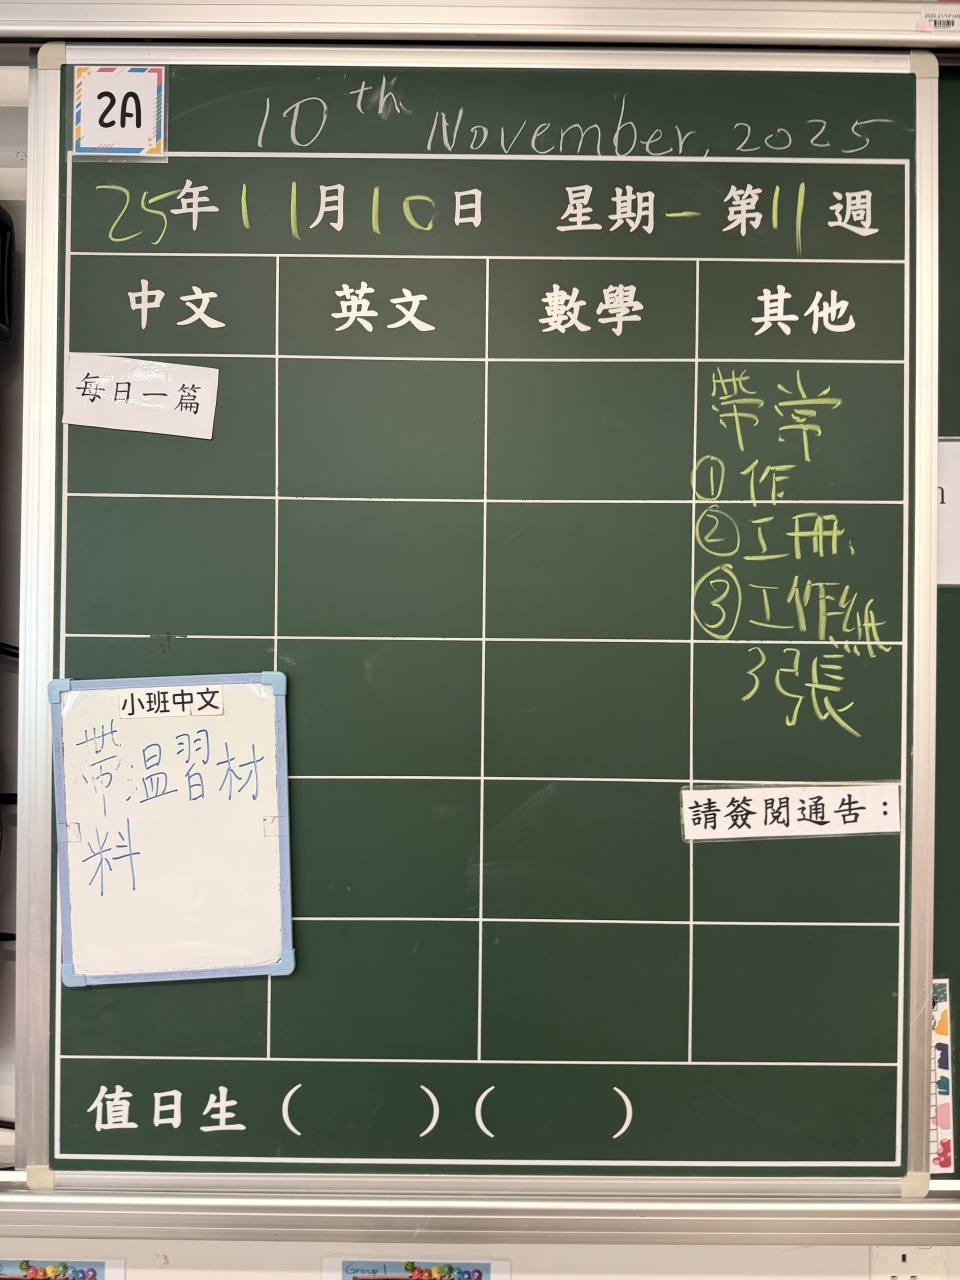 2A
10th November, 2025
25年11月10日 星期一 第11週
中文 英文 數學 其他
每日一篇
帶常
①作
②工冊
③工作紙
3張
小班中文
帶溫習材
料
請簽閱通告：
值日生 ( ) ( )
Group 1